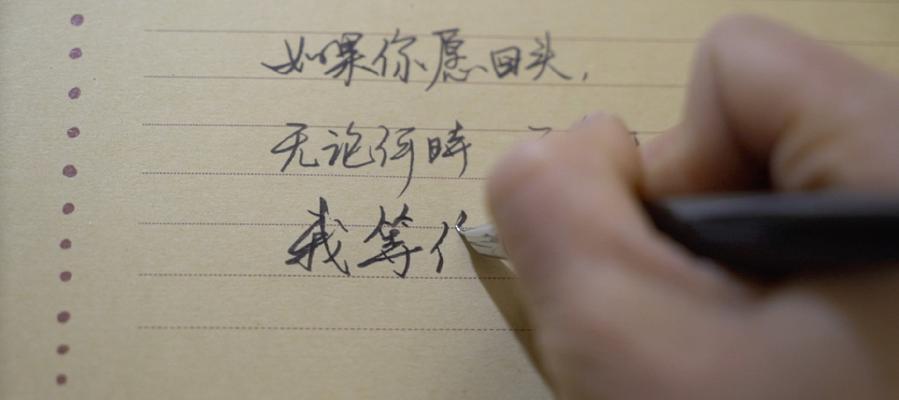 如果你愿回头，
无论何時
我等